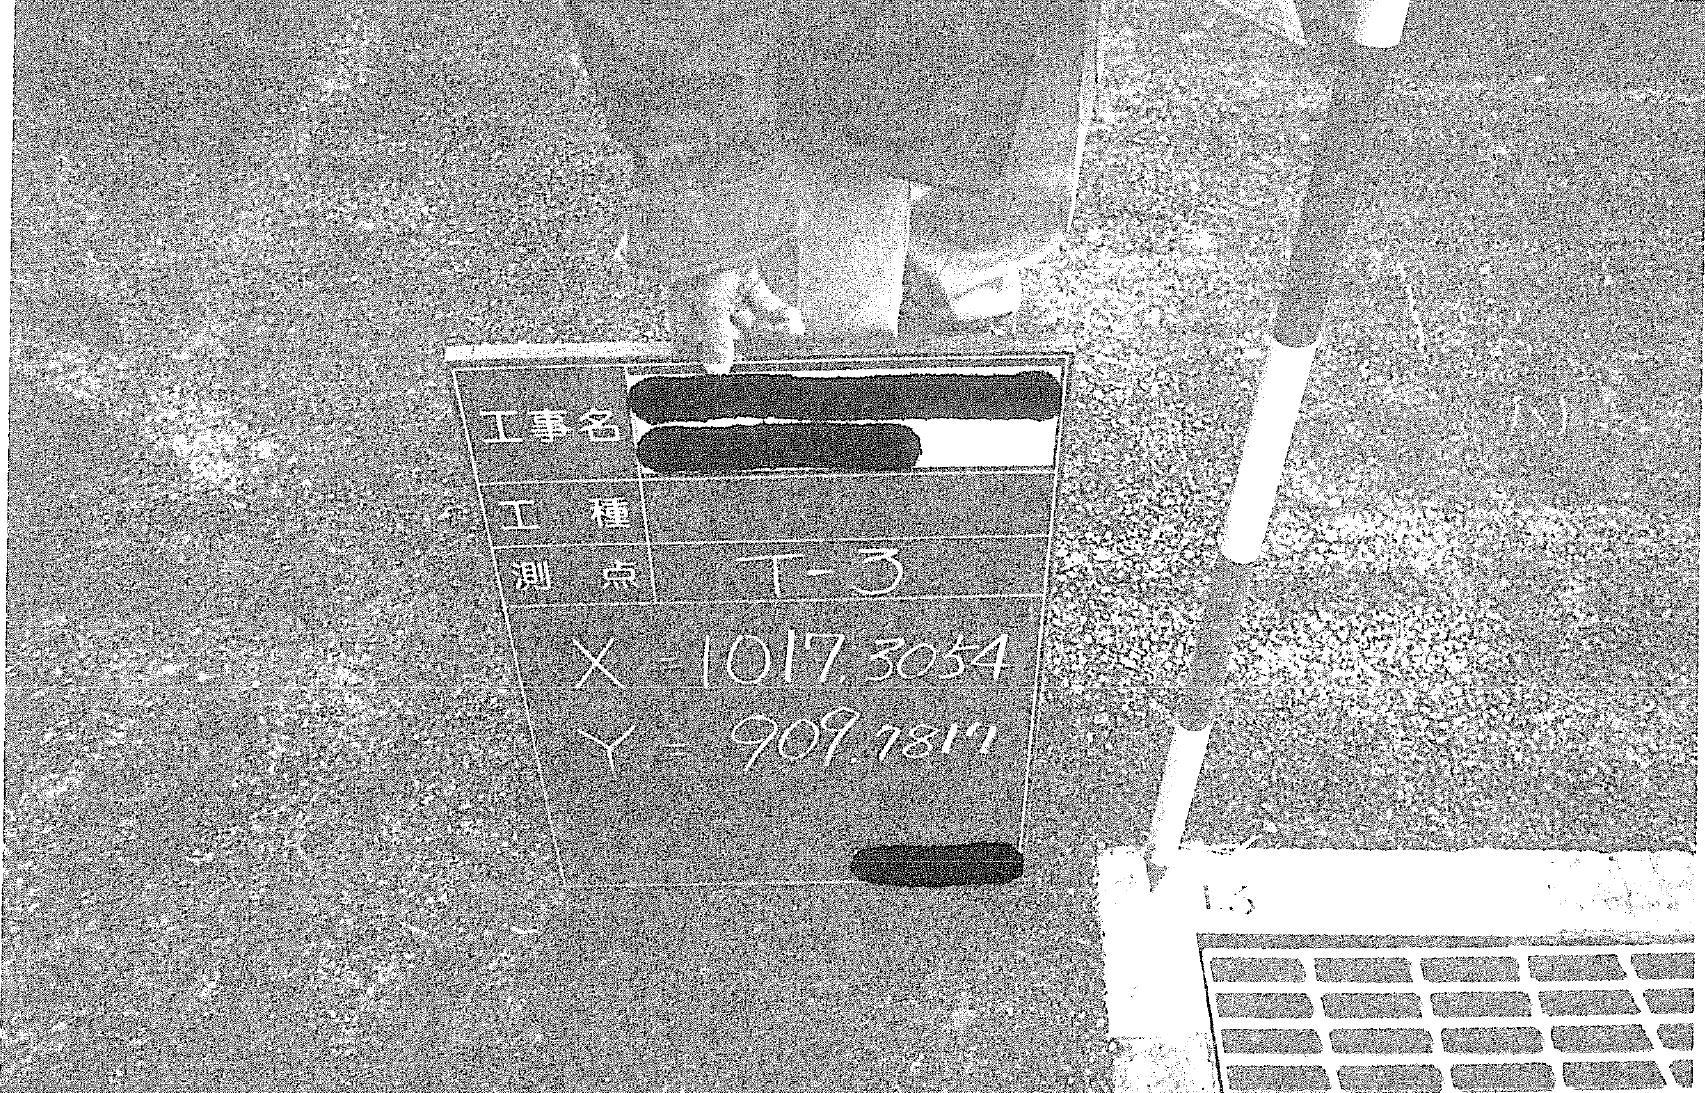 工事名
工種
測点 T-3
X = 1017.3054
Y = 909.7817